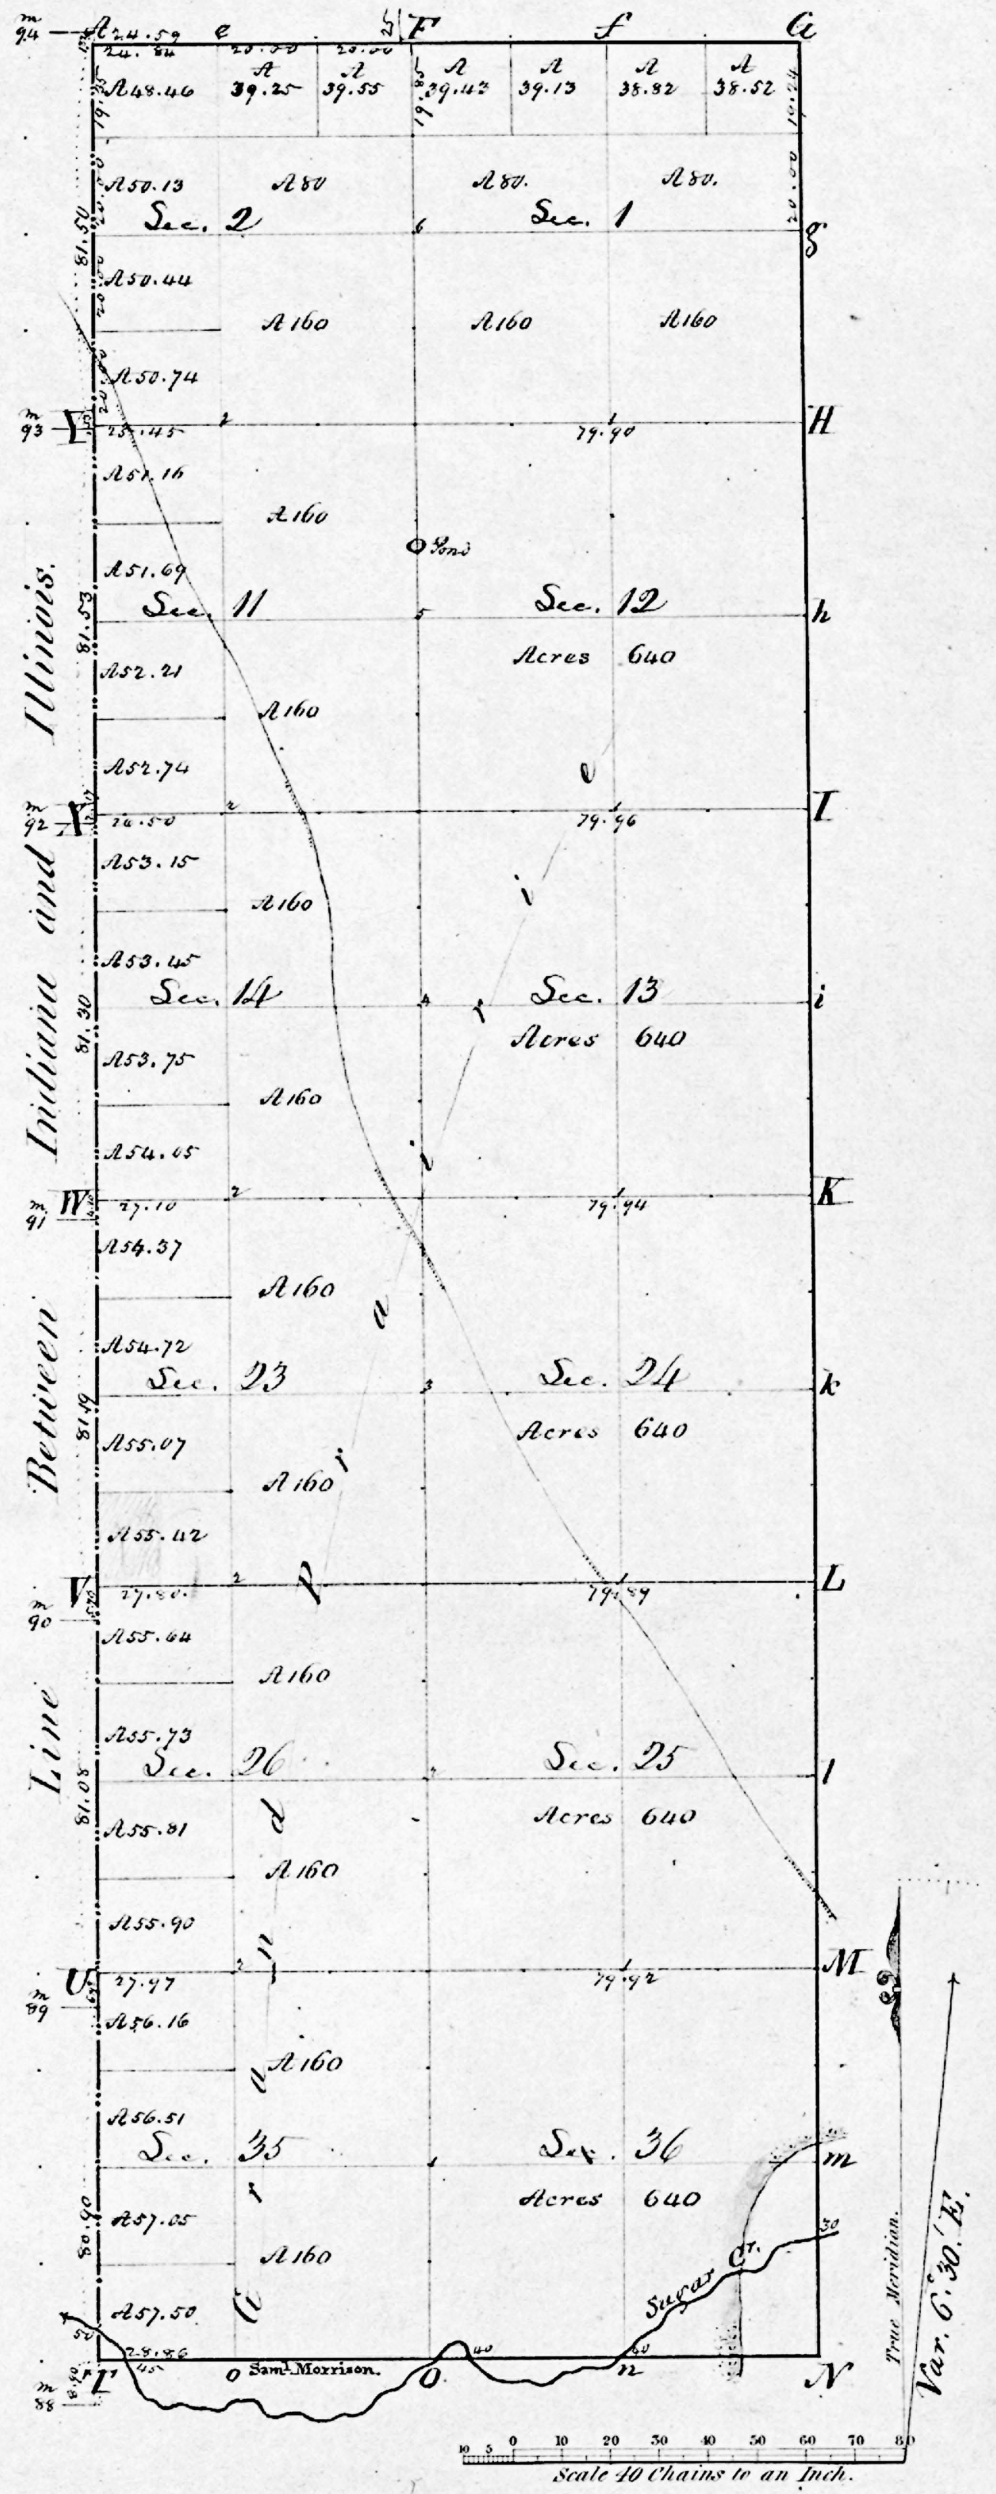 m 94 A 24.59 e F f G
24.84 20.00 20.00
A48.46 A 39.25 A 39.55 A 39.43 A 39.13 A 38.82 A 38.52
19.24
A50.13 A80 A80. A80.
20.00
Sec. 2 6 Sec. 1 g
81.50
A50.44
A160 A160 A160
A50.74
m 93 Y 25.45 2 79.90 H
A51.16
A160
Pond
A51.69
Sec. 11 5 Sec. 12 h
81.53
Acres 640
A52.21
A160
A52.74
m 92 X 26.50 2 79.96 I
A53.15
A160
A53.45
Sec. 14 4 Sec. 13 i
81.30
Acres 640
A53.75
A160
A54.05
m 91 W 27.10 2 79.94 K
A54.37
A160
A54.72
Sec. 23 3 Sec. 24 k
81.19
Acres 640
A55.07
A160
A55.42
m 90 V 27.80. 2 79.89 L
A55.64
A160
A55.73
Sec. 26 2 Sec. 25 l
81.08
Acres 640
A55.81
A160
A55.90
m 89 U 27.97 2 79.92 M
A56.16
A160
A56.51
Sec. 35 Sec. 36 m
80.90
Acres 640
A57.05
A160
30
Sugar Cr.
A57.50
50
28.86 40 60
m 88 T 45 o Saml. Morrison. O n N
Line Between Indiana and Illinois.
Grand Pririrairie
True Meridian.
Var. 6.° 30.' E.
10 5 0 10 20 30 40 50 60 70 80
Scale 40 Chains to an Inch.